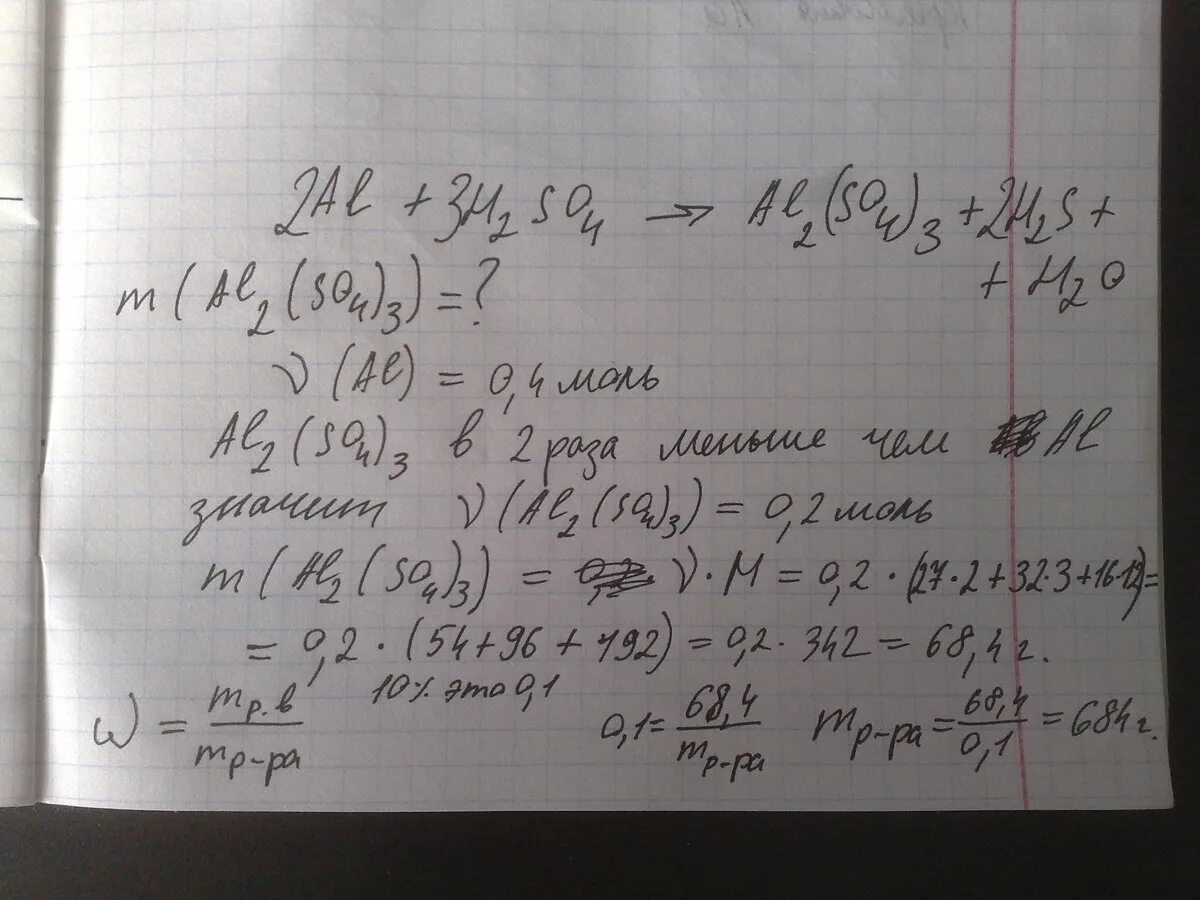 2Al + 3H₂SO₄ → Al₂(SO₄)₃ + 2H₂S +
+ H₂O
m(Al₂(SO₄)₃) = ?
ν(Al) = 0,4 моль
Al₂(SO₄)₃ в 2 раза меньше чем Al
значит ν(Al₂(SO₄)₃) = 0,2 моль
m(Al₂(SO₄)₃) = ν · M = 0,2 · (27·2+32·3+16·12) =
= 0,2 · (54+96+192) = 0,2 · 342 = 68,4 г.
10% это 0,1
ω = mр.в / mр-ра 0,1 = 68,4 / mр-ра mр-ра = 68,4 / 0,1 = 684 г.